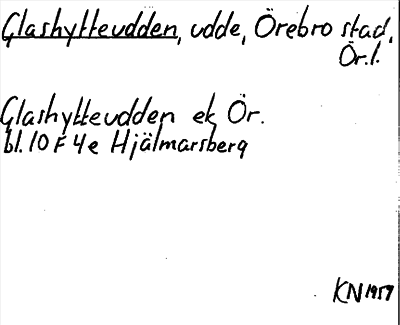 Glashytteudden, udde, Örebro stad,
Ör.l.
Glashytteudden ek Ör.
bl. 10 F 4 e Hjälmarsberg
KN 1959